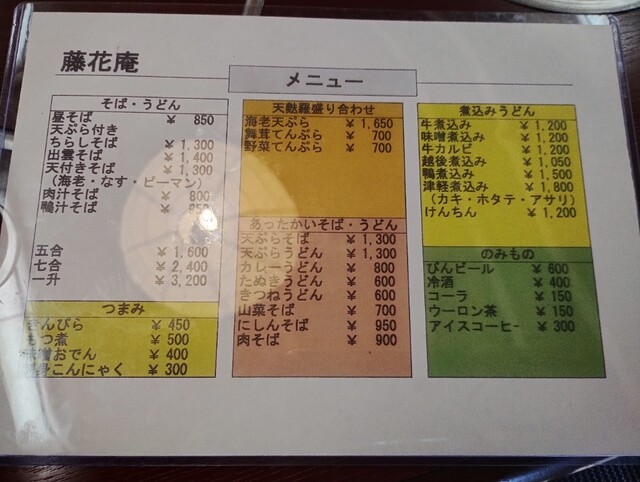 藤花庵
メニュー
そば・うどん
昼そば ￥ 850
天ぷら付き
ちらしそば ￥ 1,300
出雲そば ￥ 1,400
天付きそば ￥ 1,300
（海老・なす・ピーマン）
肉汁そば ￥ 800
鴨汁そば ￥
五合 ￥ 1,600
七合 ￥ 2,400
一升 ￥ 3,200
つまみ
きんぴら ￥ 450
もつ煮 ￥ 500
味噌おでん ￥ 400
刺身こんにゃく ￥ 300
天麩羅盛り合わせ
海老天ぷら ￥ 1,650
舞茸てんぷら ￥ 700
野菜てんぷら ￥ 700
あったかいそば・うどん
天ぷらそば ￥ 1,300
天ぷらうどん ￥ 1,300
カレーうどん ￥ 800
たぬきうどん ￥ 600
きつねうどん ￥ 600
山菜そば ￥ 700
にしんそば ￥ 950
肉そば ￥ 900
煮込みうどん
牛煮込み ￥ 1,200
味噌煮込み ￥ 1,200
牛カルビ ￥ 1,200
越後煮込み ￥ 1,050
鴨煮込み ￥ 1,500
津軽煮込み ￥ 1,800
（カキ・ホタテ・アサリ）
けんちん ￥ 1,200
のみもの
びんビール ￥ 600
冷酒 ￥ 400
コーラ ￥ 150
ウーロン茶 ￥ 150
アイスコーヒｰ ￥ 300